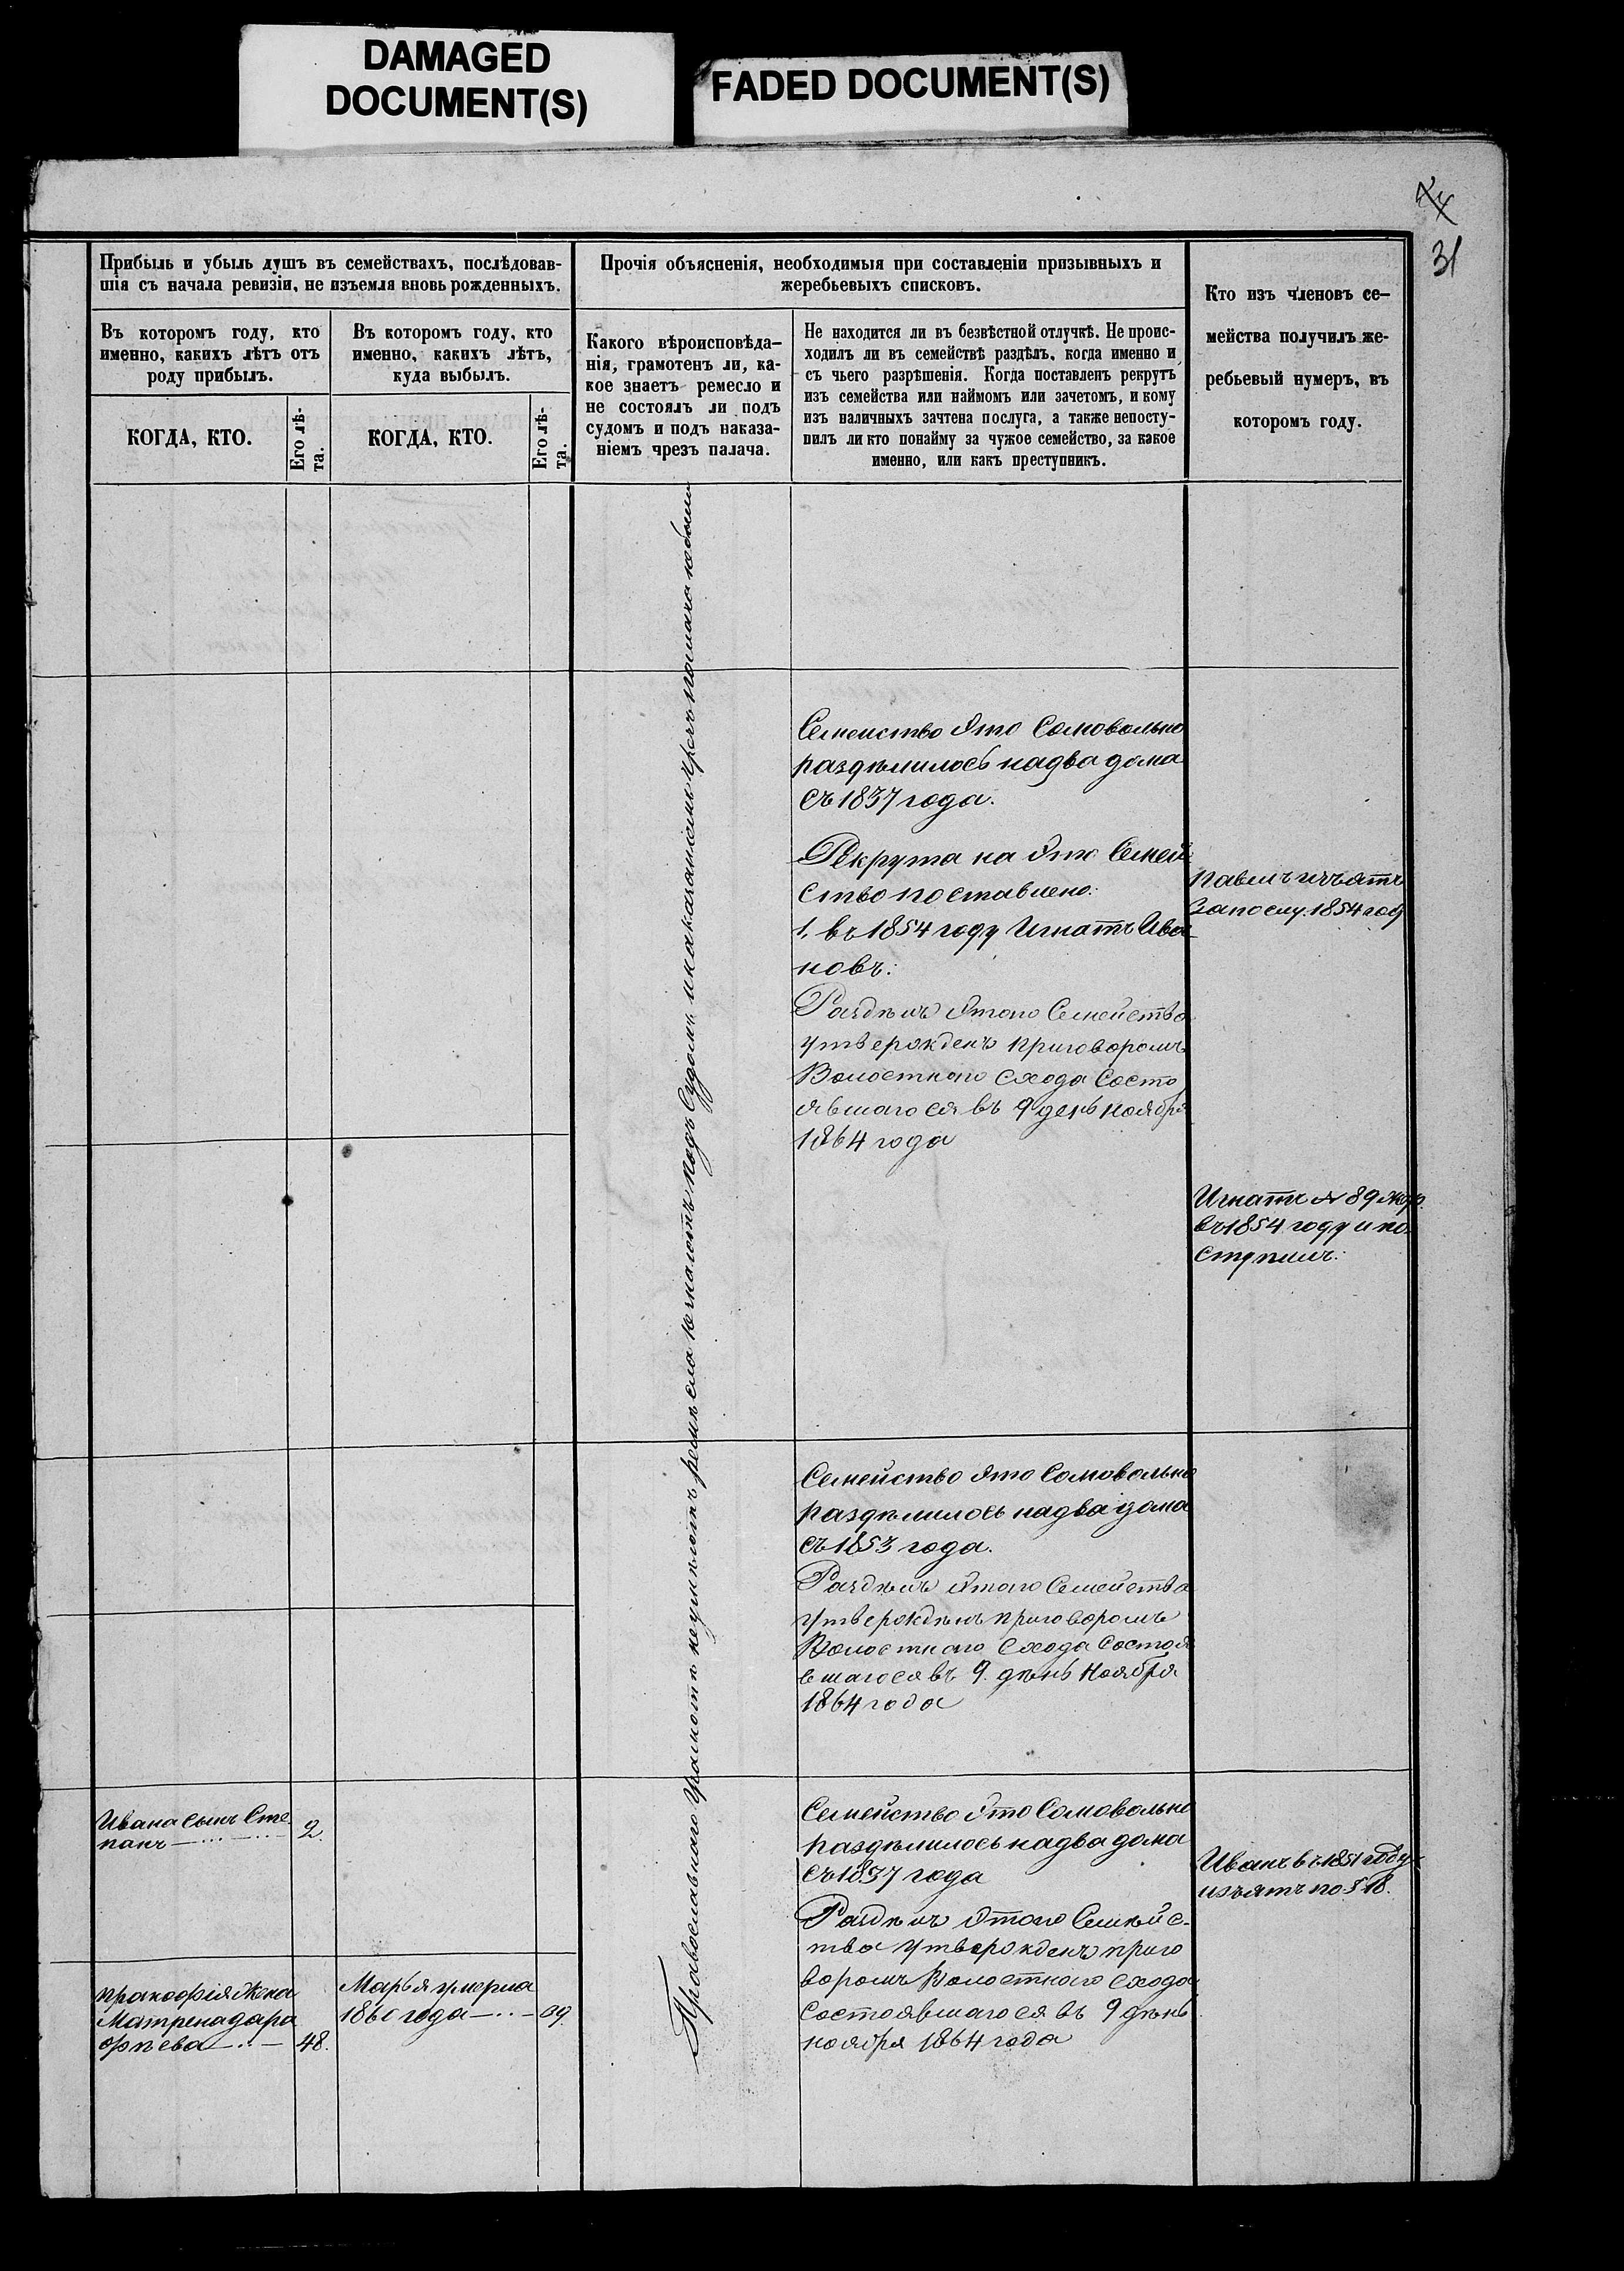 DAMAGED
DOCUMENT(S)
FADED DOCUMENT(S)
31
Прибыль и убыль душъ въ семействахъ, послѣдовав-
шія съ начала ревизіи, не изъемля вновь рожденныхъ.
Въ которомъ году, кто
именно, какихъ лѣтъ отъ
роду прибылъ.
Въ которомъ году, кто
именно, какихъ лѣтъ,
куда выбылъ.
КОГДА, КТО.
Его лѣ-
та.
КОГДА, КТО.
Его лѣ-
та.
Прочія объясненія, необходимыя при составленіи призывныхъ и
жеребьевыхъ списковъ.
Какого вѣроисповѣда-
нія, грамотенъ ли, ка-
кое знаетъ ремесло и
не состоялъ ли подъ
судомъ и подъ наказа-
ніемъ чрезъ палача.
Не находится ли въ безвѣстной отлучкѣ. Не проис-
ходилъ ли въ семействѣ раздѣлъ, когда именно и
съ чьего разрѣшенія. Когда поставленъ рекрутъ
изъ семейства или наймомъ или зачетомъ, и кому
изъ наличныхъ зачтена послуга, а также непосту-
пилъ ли кто понайму за чужое семейство, за какое
именно, или какъ преступникъ.
Кто изъ членовъ се-
мейства получилъ же-
ребьевый нумеръ, въ
которомъ году.
Православнаго Грамотѣ неумѣютъ ремѣсла незнаютъ подъ Судомъ инаказаніемъ чрезъ палача небыли
Семеиство Это Самовольно
раздѣлилось надва дома
съ 1837 года.
Рекрута на Это Семей
ство поставлено:
1. въ 1854 году Игнатъ Ива
новъ:
Раздѣлъ Этого Семейства
утвержденъ приговоромъ
Волостнаго Схода Состо
явшагося въ 9 день ноября
1864 года
Павелъ изъятъ
Запослу. 1854 год
Игнатъ № 89 жер.
въ 1854 году и по-
ступилъ:
Семейство Это Самовольно
раздѣлилось надва дома
съ 1853 года.
Раздѣлъ Этого Семейства
утвержденъ приговоромъ
Волостнаго Схода Состоя
вшагося въ 9. день Ноября
1864 года
Ивана сынъ Сте
панъ
2.
Семейство Это Самовольно
раздѣлилось надва дома
съ 1837 года
Раздѣлъ Этого Семѣйс-
тва утвержденъ приго
воромъ Волостнаго схода
состоявшагося въ 9 день
ноября 1864 года
Иванъ въ 1851 году
изъятъ по § 18.
прокофія Жена
Матрена дора
фѣева
48.
Марья умерла
1860 года